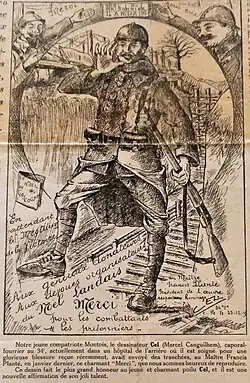 Merci
LANDAIS
En
attendant
et Toujours
Aux généreux Donateurs
Aux dévoués organisateurs
du
Noël Landais
Merci
pour les combattants
& les prisonniers.
Au Maître
Francis Planté
Président de l'œuvre
Notre jeune compatriote Montois, le dessinateur Cel (Marcel Canguilhem), caporal-
fourrier au 34e, actuellement dans un hôpital de l'arrière où il est soigné pour une
glorieuse blessure reçue récemment, avait envoyé des tranchées, au Maître Francis
Planté, en janvier dernier, ce charmant "Merci", que nous sommes heureux de reproduire.
Ce dessin fait le plus grand honneur au jeune et charmant poilu Cel, et il est une
nouvelle affirmation de son joli talent.